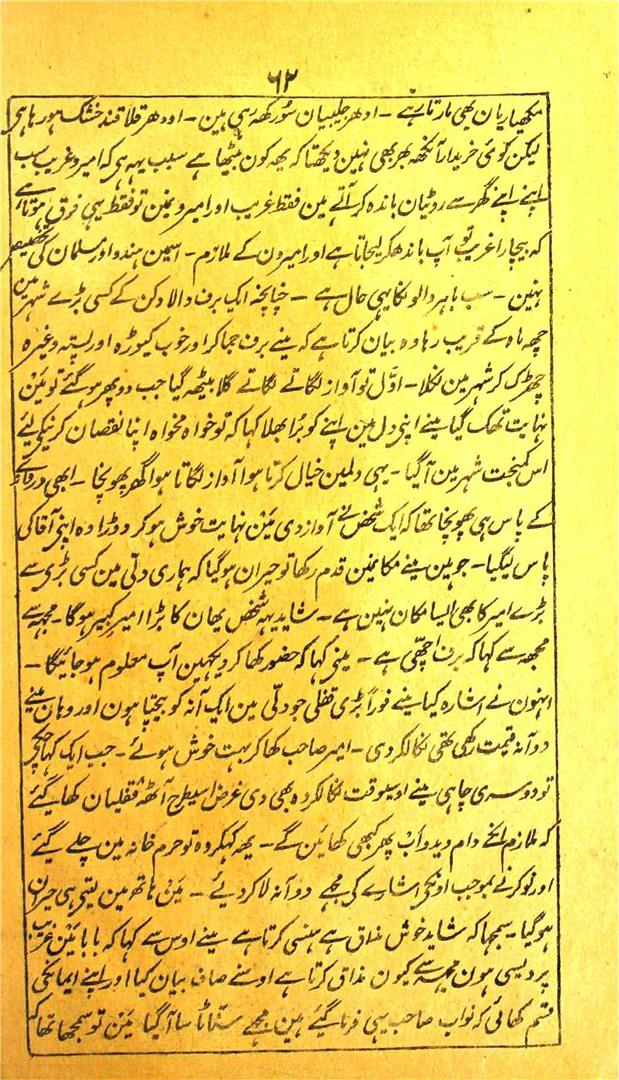 ۶۲
مکھیاریان بھی مارتا رہے - ادھر جلیبیان سُوکھ رہی ہین - اودھر قلاقند خشک ہو رہا ہی
لیکن کوئی خریدار آنکھ بھر بھی نہین دیکھتا کہ یہہ کون بیٹھا ہے سبب یہہ ہی کہ امیر و غریب سب
اپنے اپنے گھر سے روٹیان باندہ کر آتے ہین فقط غریب اور امیرونمین تو فقط یہی فرق ہوتا ہے
کہ بیچارا غریب تو آپ باندھکر لیجاتا ہے اور امیرون کے ملازم - اسمین ہندو اور مسلمان کی تخصیص
نہین - سب باہر والونکا یہی حال ہے - چناچہ ایک برف والا دکن کے کسی بڑے شہر مین
چھہ ماہ کے قریب رہا وہ بیان کرتا ہے کہ مینے برف جما کر اور خوب کیوڑہ اور پستہ وغیرہ
چھڑک کر شہر مین نکلا - اوّل تو آواز لگاتے لگاتے گلا بیٹھہ گیا جب دوپہر ہو گئے تو مَین
نہایت تھک گیا مینے اپنی دل مین اپنے کو بُرا بھلا کہا کہ تو خواہ مخواہ اپنا نقصان کرنیکے لئے
اس کمبخت شہر مین آگیا - یہی دلمین خیال کرتا ہوا آواز لگاتا ہوا گھر پھونچا - ابھی دروازے
کے پاس ہی پھونچا تھا کہ ایک شخص نے آواز دی مَین نہایت خوش ہو کر دوڑا وہ اپنی آقا کی
پاس لیگیا - جوہین مینے مکانمین قدم رکھا تو حیران ہو گیا کہ ہماری دلی مین کسی بڑی سے
بڑے امیر کا بھی ایسا مکان نہین ہے - شاید یہہ شخص یھان کا بڑا امیر کبیر ہوگا - مجھہ سے
مجھہ سے کہا کہ برف اچھی ہے - مینی کہا کہ حضور کھا کر دیکہین آپ معلوم ہو جائیگا -
انہون نے اشارہ کیا مینے فوراً بڑی قفلی جو دلی مین ایک آنہ کو بیچتا ہون اور وہان مینے
دو آنہ قیمت رکھی تھی نکالکر دی - امیر صاحب کھا کر بہت خوش ہوئے - جب ایک کھا چکے
تو دوسری چاہی مینے اوسیوقت نکالکر وہ بھی دی غرض اسیطرح آٹھہ قفلیان کھا گئے
کہ ملازم انکے دام دیدو اب پھر کبھی کھائین گے - یھہ کہکر وہ تو حرم خانہ مین چلے گئے
اور نوکر نے بموجب اونکی اشارے کی مجھے دو آنہ لا کر دیئے - مَین ہاتھ مین لیتی ہی حیران
ہو گیا - سمجہا کہ شاید خوش مذاق ہے ہنسی کرتا ہے مینے اوس سے کہا کہ بابا مَین غریب
پردیسی ہون مجھہ سے کیون مذاق کرتا ہے اوسنے صاف بیان کیا اور اپنے ایمانکی
قسم کھائی کہ نواب صاحب یہی فرما گئے ہین مجھے سنّاٹا سا آ گیا مَین تو سمجھا تھا کہ